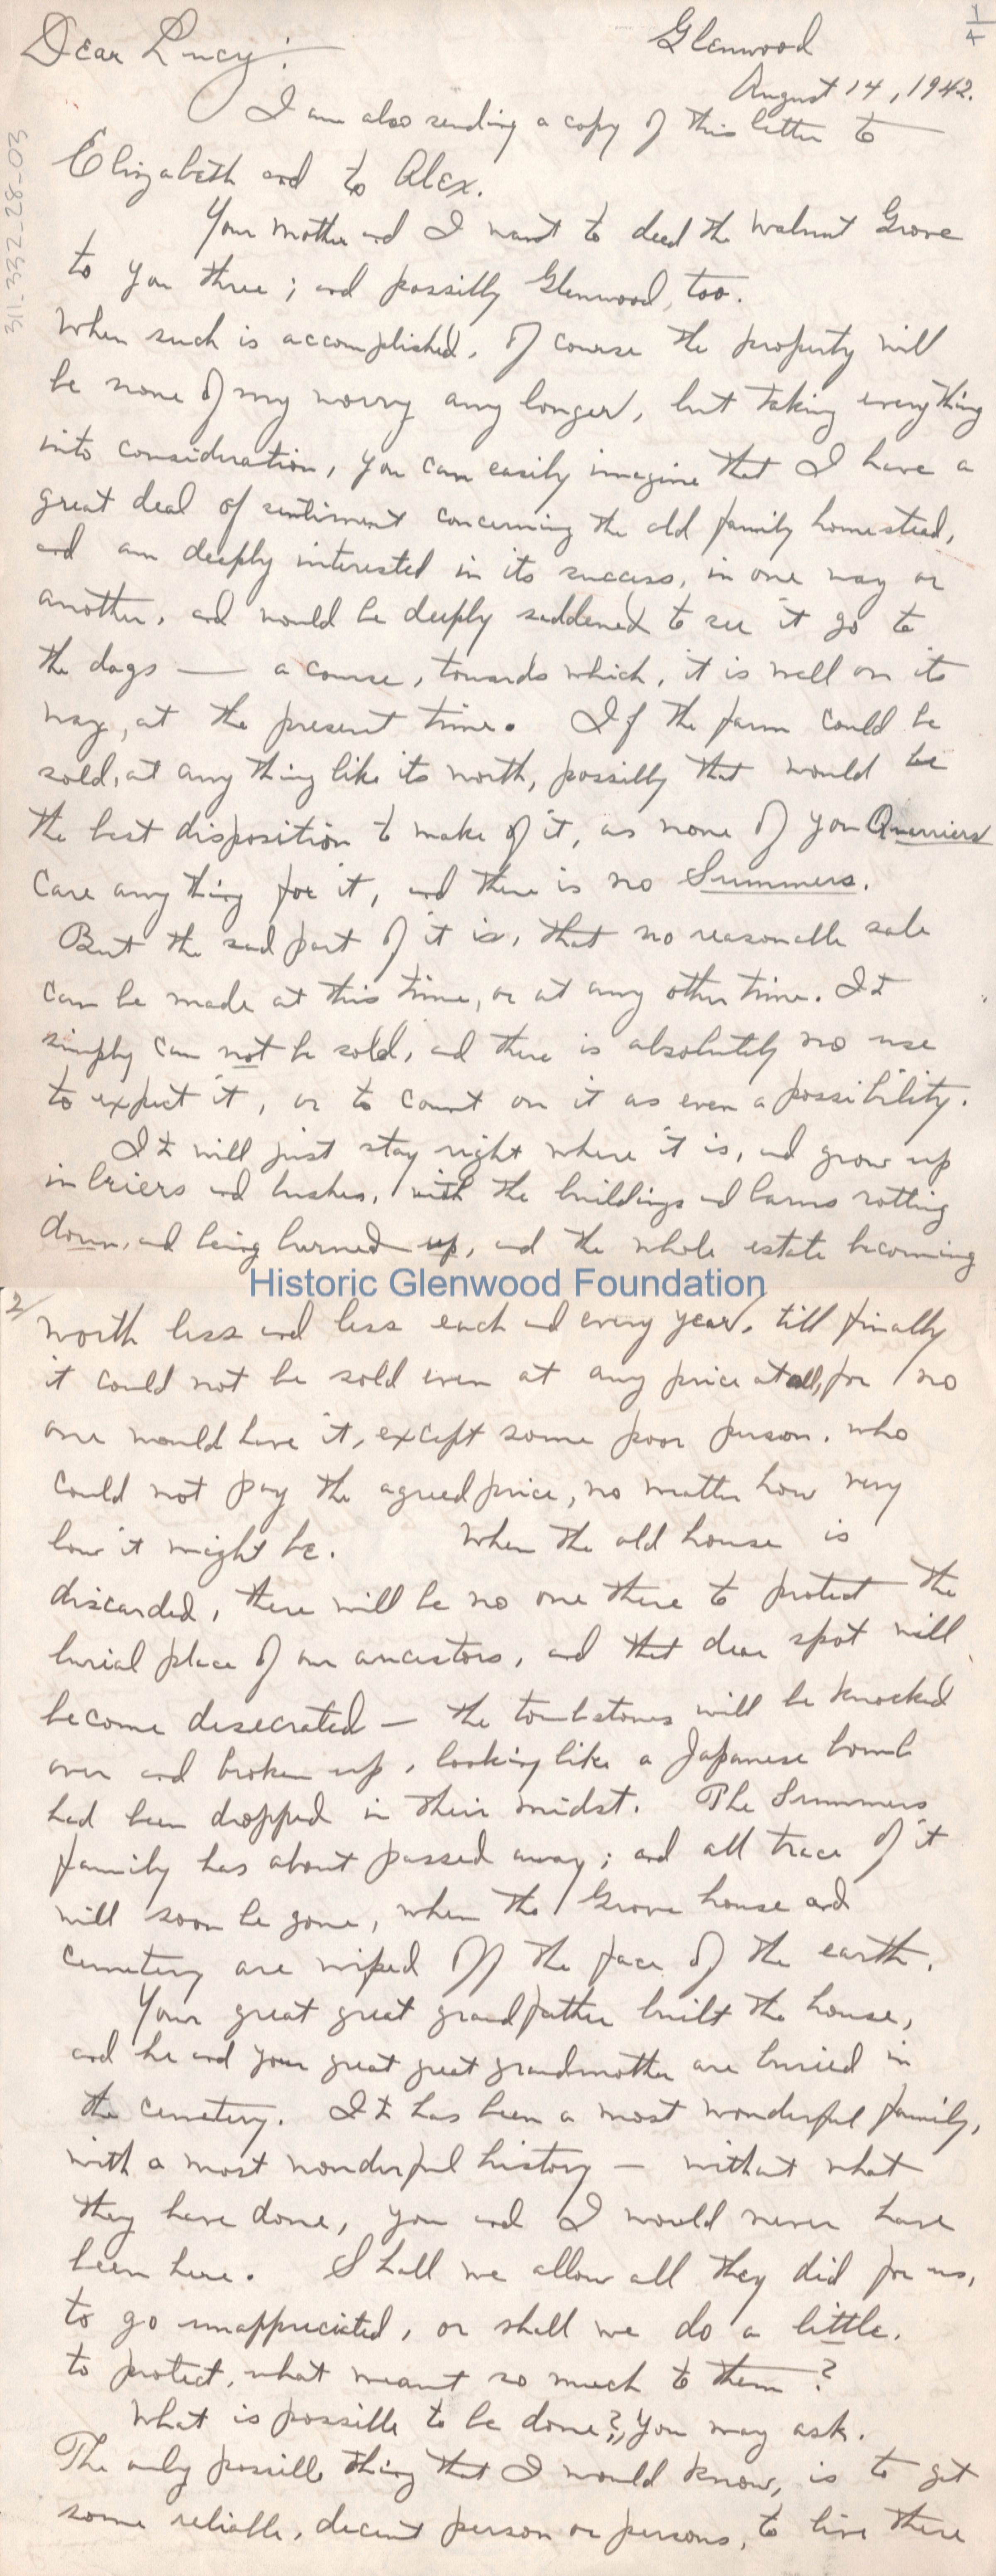 1/4
Glenwood
August 14, 1942.
Dear Lucy:
I am also sending a copy of this letter to
Elizabeth and to Alex.
Your mother and I want to deed the Walnut Grove
to you three; and possibly Glenwood, too.
When such is accomplished, of course the property will
be none of my worry any longer, but taking everything
into consideration, you can easily imagine that I have a
great deal of sentiment concerning the old family homestead,
and am deeply interested in its success, in one way or
another, and would be deeply saddened to see it go to
the dogs — a course, towards which, it is well on its
way, at the present time. If the farm could be
sold, at any thing like its worth, possibly that would be
the best disposition to make of it, as none of you Quarriers
care any thing for it, and there is no Summers.
But the sad part of it is, that no reasonable sale
can be made at this time, or at any other time. It
simply can not be sold, and there is absolutely no use
to expect it, or to count on it as even a possibility.
It will just stay right where it is, and grow up
in briers and bushes, with the buildings and barns rotting
down, and being burned up, and the whole estate becoming
311-332_28-03
Historic Glenwood Foundation
2/
worth less and less each and every year, till finally
it could not be sold even at any price at all, for no
one would have it, except some poor person, who
could not pay the agreed price, no matter how very
low it might be. When the old house is
discarded, there will be no one there to protect the
burial place of our ancestors, and that dear spot will
become desecrated — the tombstones will be knocked
over and broken up, looking like a Japanese bomb
had been dropped in their midst. The Summers
family has about passed away; and all trace of it
will soon be gone, when the Grove house and
cemetery are wiped off the face of the earth.
Your great great grandfather built the house,
and he and your great great grandmother are buried in
the cemetery. It has been a most wonderful family,
with a most wonderful history — without what
they have done, you and I would never have
been here. Shall we allow all they did for us,
to go unappreciated, or shall we do a little,
to protect, what meant so much to them?
What is possible to be done?, you may ask.
The only possible thing that I would know, is to get
some reliable, decent person or persons, to live there